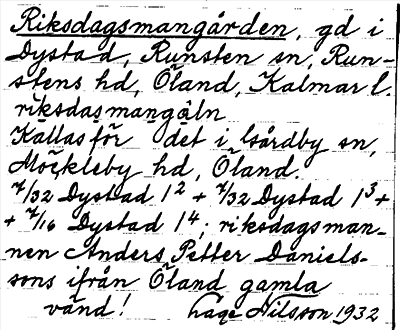 Riksdagsmangården, gd i
Dystad, Runsten sn, Run-
stens hd, Öland, Kalmar l.
riksdasmangāln
Kallas för det i Gårdby sn,
Möckleby hd, Öland.
7/32 Dystad 1² + 7/32 Dystad 1³ +
+ 7/16 Dystad 1⁴; riksdagsman-
nen Anders Petter Daniels-
sons ifrån Öland gamla
vänd! Låge Nilsson 1932